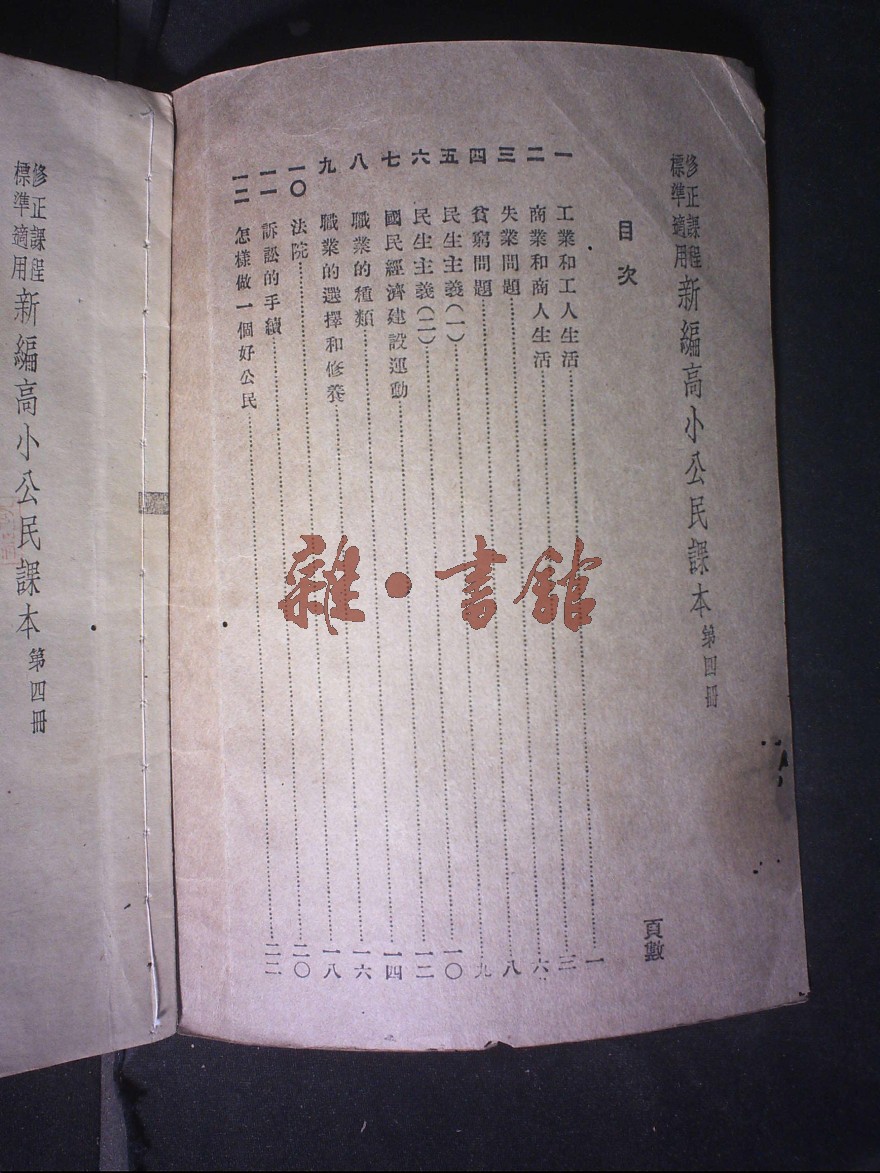 修正課程標準適用 新編高小公民課本 第四冊
目次 頁數
一 工業和工人生活……一
二 商業和商人生活……三
三 失業問題……六
四 貧窮問題……八
五 民生主義(一)……九
六 民生主義(二)……一〇
七 國民經濟建設運動……一二
八 職業的種類……一四
九 職業的選擇和修養……一六
一〇 法院……一八
一一 訴訟的手續……二〇
一二 怎樣做一個好公民……二二
修正課程標準適用 新編高小公民課本 第四冊
雜·書館